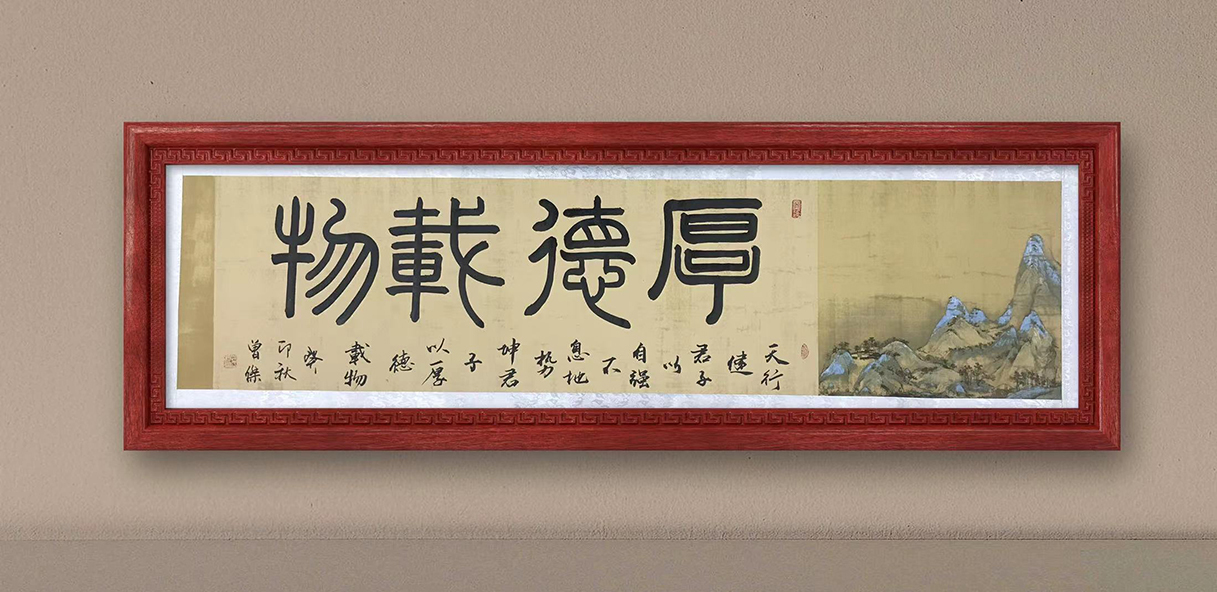 厚德載物
天行健君子以自強不息地勢坤君子以厚德載物
癸卯秋
曾